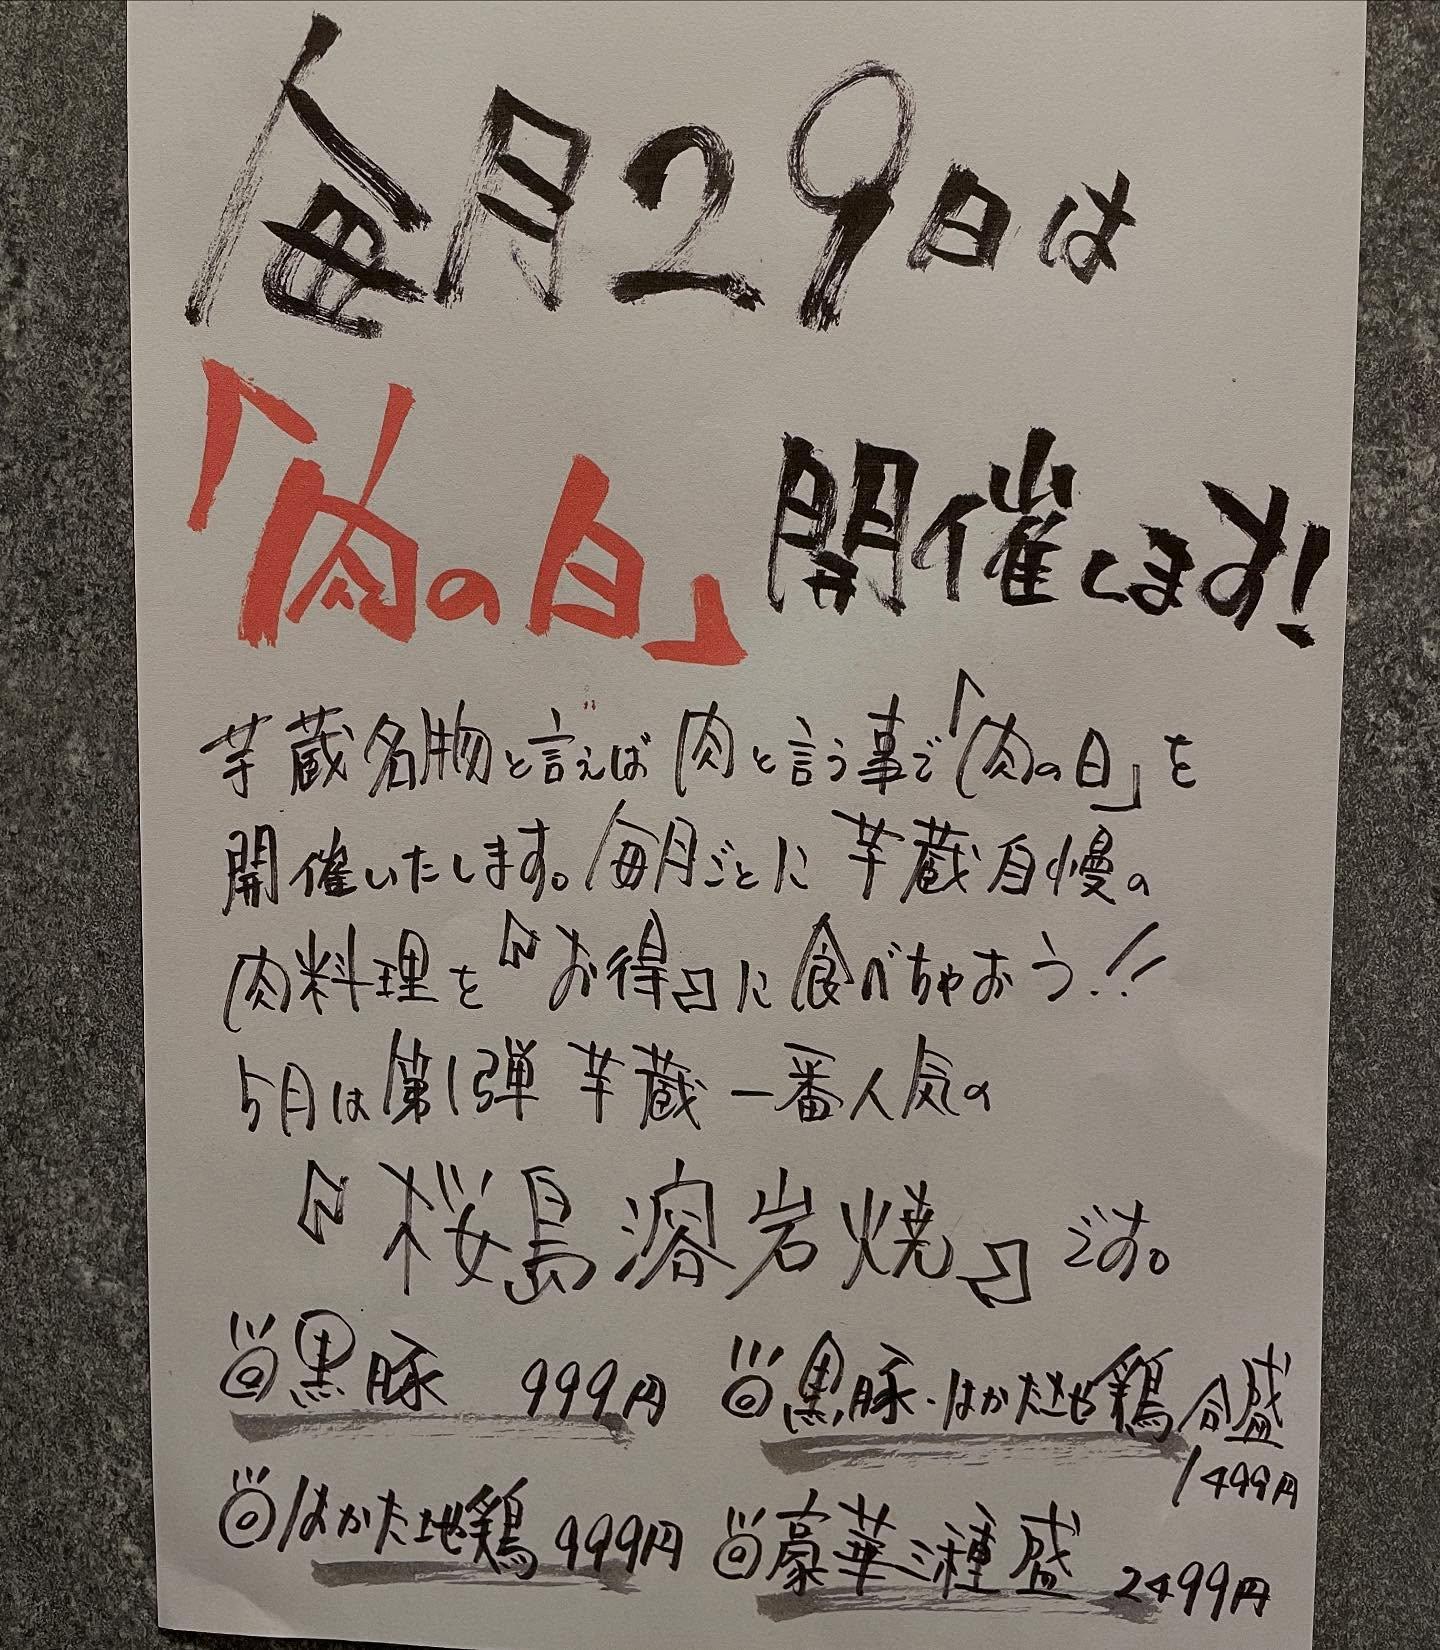 毎月29日は
「肉の日」開催します!
芋蔵名物と言えば肉と言う事で「肉の日」を
開催いたします。毎月ごとに芋蔵自慢の
肉料理を『お得』に食べちゃおう!!
5月は第1弾 芋蔵一番人気の
『桜島溶岩焼』です。
◎黒豚 999円
◎黒豚・はかた地鶏合盛
1499円
◎はかた地鶏 999円
◎豪華三種盛 2499円